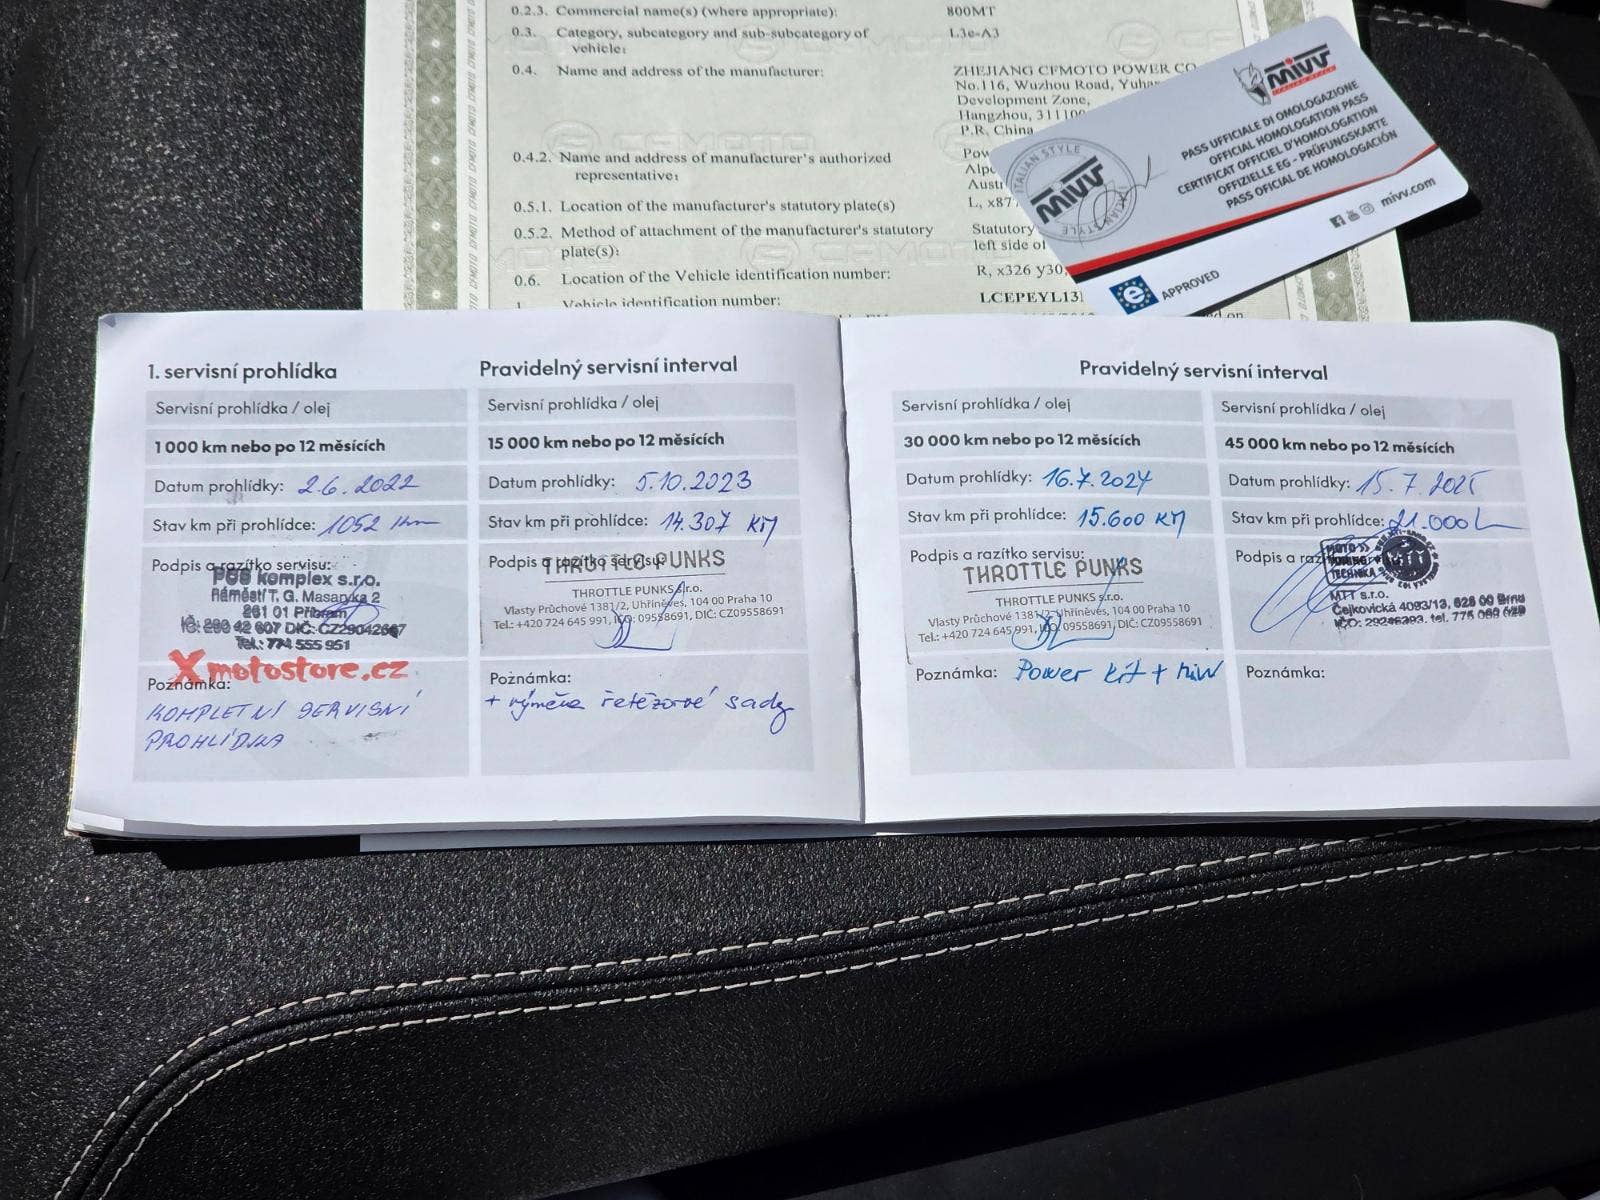 0.2.3. Commercial name(s) (where appropriate): 800MT
0.3. Category, subcategory and sub-subcategory of vehicle: L3e-A3
0.4. Name and address of the manufacturer: ZHEJIANG CFMOTO POWER CO
No.116, Wuzhou Road,
Development Zone,
Hangzhou,
P.R. China
0.4.2. Name and address of manufacturer's authorized representative:
0.5.1. Location of the manufacturer's statutory plate(s) L,
0.5.2. Method of attachment of the manufacturer's statutory plate(s): Statutory
left side of
0.6. Location of the Vehicle identification number: R, x326 y30,
Vehicle identification number: LCEPEYL13
MIVV
ITALIAN STYLE
PASS UFFICIALE DI OMOLOGAZIONE
OFFICIAL HOMOLOGATION PASS
CERTIFICAT OFFICIEL D'HOMOLOGATION
OFFIZIELLE EG - PRÜFUNGSKARTE
PASS OFICIAL DE HOMOLOGACIÓN
ITALIAN STYLE
MIVV
mivv.com
e APPROVED
1. servisní prohlídka
Servisní prohlídka / olej
1 000 km nebo po 12 měsících
Datum prohlídky: 2.6.2022
Stav km při prohlídce: 1052 km
Podpis a razítko servisu:
PGS komplex s.r.o.
Náměstí T. G. Masaryka 2
261 01 Příbram
Tel.: 774 555 951
Xmotostore.cz
Poznámka:
KOMPLETNÍ SERVISNÍ
PROHLÍDKA
Pravidelný servisní interval
Servisní prohlídka / olej
15 000 km nebo po 12 měsících
Datum prohlídky: 5.10.2023
Stav km při prohlídce: 14.307 KM
Podpis a razítko servisu:
THROTTLE PUNKS
THROTTLE PUNKS s.r.o.
Vlasty Průchové 1381/2, Uhříněves, 104 00 Praha 10
Tel.: +420 724 645 991, IČO: 09558691, DIČ: CZ09558691
Poznámka:
+ výměna řetězové sady
Pravidelný servisní interval
Servisní prohlídka / olej
30 000 km nebo po 12 měsících
Datum prohlídky: 16.7.2024
Stav km při prohlídce: 15.600 KM
Podpis a razítko servisu:
THROTTLE PUNKS
THROTTLE PUNKS s.r.o.
Vlasty Průchové 1381/2, Uhříněves, 104 00 Praha 10
Tel.: +420 724 645 991, IČO: 09558691, DIČ: CZ09558691
Poznámka: Power kit +
Servisní prohlídka / olej
45 000 km nebo po 12 měsících
Datum prohlídky: 15.7.2025
Stav km při prohlídce: 21.000
Podpis a
MOTO
TECHNIKA
MTT s.r.o.
Čejkovická 4093/13, 628 00 Brno
Poznámka: